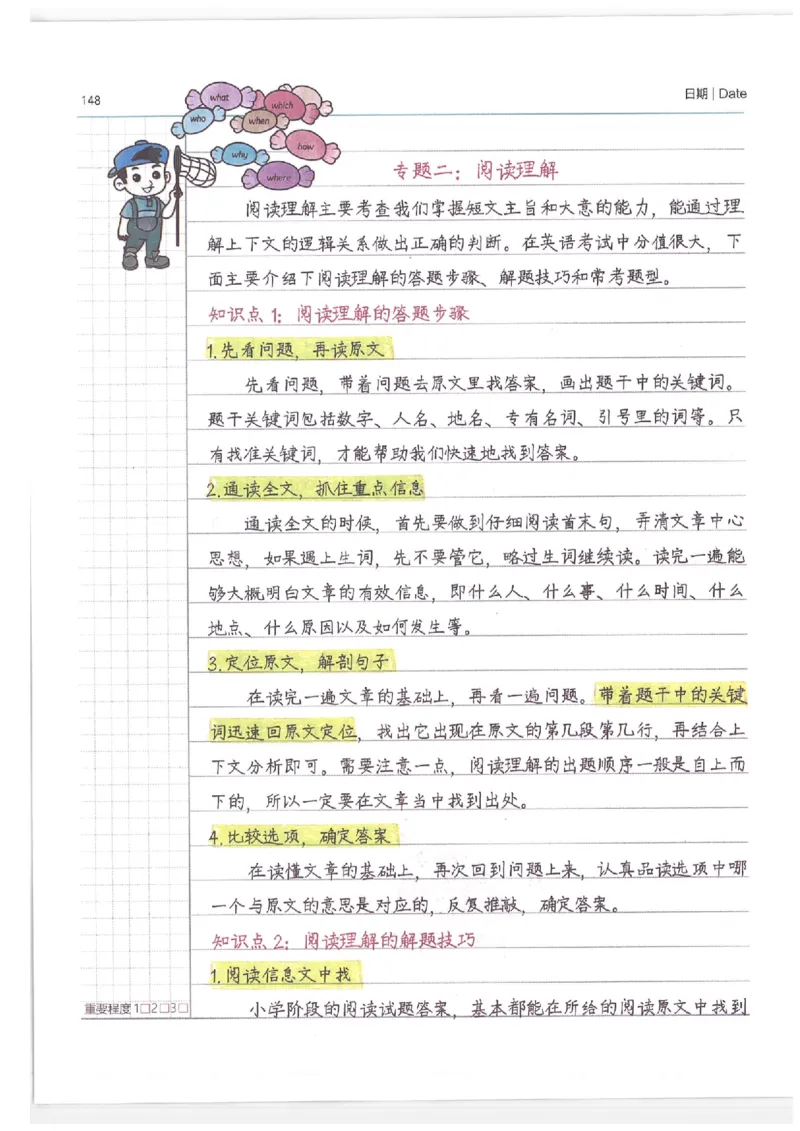 148
日期 | Date
what
which
who
when
how
why
where
专题二：阅读理解
阅读理解主要考查我们掌握短文主旨和大意的能力，能通过理
解上下文的逻辑关系做出正确的判断。在英语考试中分值很大，下
面主要介绍下阅读理解的答题步骤、解题技巧和常考题型。
知识点 1：阅读理解的答题步骤
1.先看问题，再读原文
先看问题，带着问题去原文里找答案，画出题干中的关键词。
题干关键词包括数字、人名、地名、专有名词、引号里的词等。只
有找准关键词，才能帮助我们快速地找到答案。
2.通读全文，抓住重点信息
通读全文的时候，首先要做到仔细阅读首末句，弄清文章中心
思想，如果遇上生词，先不要管它，略过生词继续读。读完一遍能
够大概明白文章的有效信息，即什么人、什么事、什么时间、什么
地点、什么原因以及如何发生等。
3.定位原文，解剖句子
在读完一遍文章的基础上，再看一遍问题。带着题干中的关键
词迅速回原文定位，找出它出现在原文的第几段第几行，再结合上
下文分析即可。需要注意一点，阅读理解的出题顺序一般是自上而
下的，所以一定要在文章当中找到出处。
4.比较选项，确定答案
在读懂文章的基础上，再次回到问题上来，认真品读选项中哪
一个与原文的意思是对应的，反复推敲，确定答案。
知识点 2：阅读理解的解题技巧
1.阅读信息文中找
小学阶段的阅读试题答案，基本都能在所给的阅读原文中找到
重要程度 1□2□3□